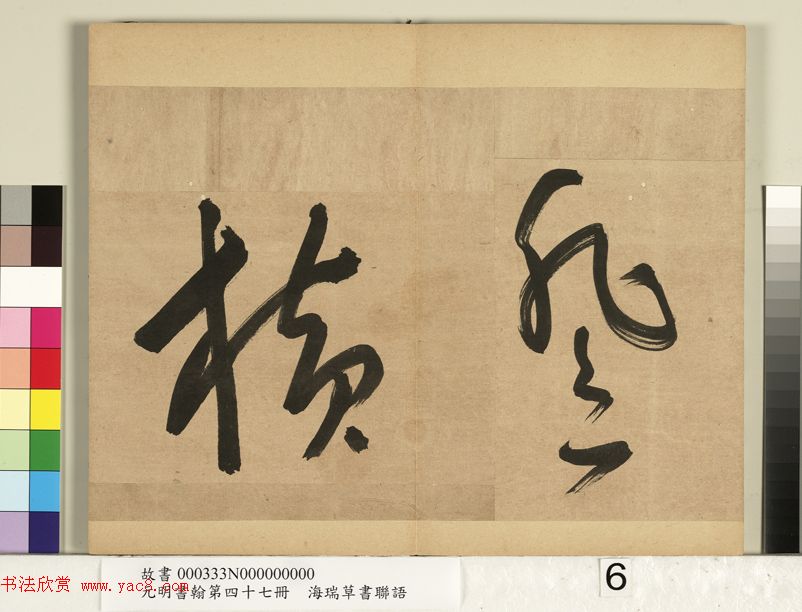 積
故書 000333N000000000
元明書翰第四十七冊 海瑞草書聯語
6
书法欣赏 www.yac8.com